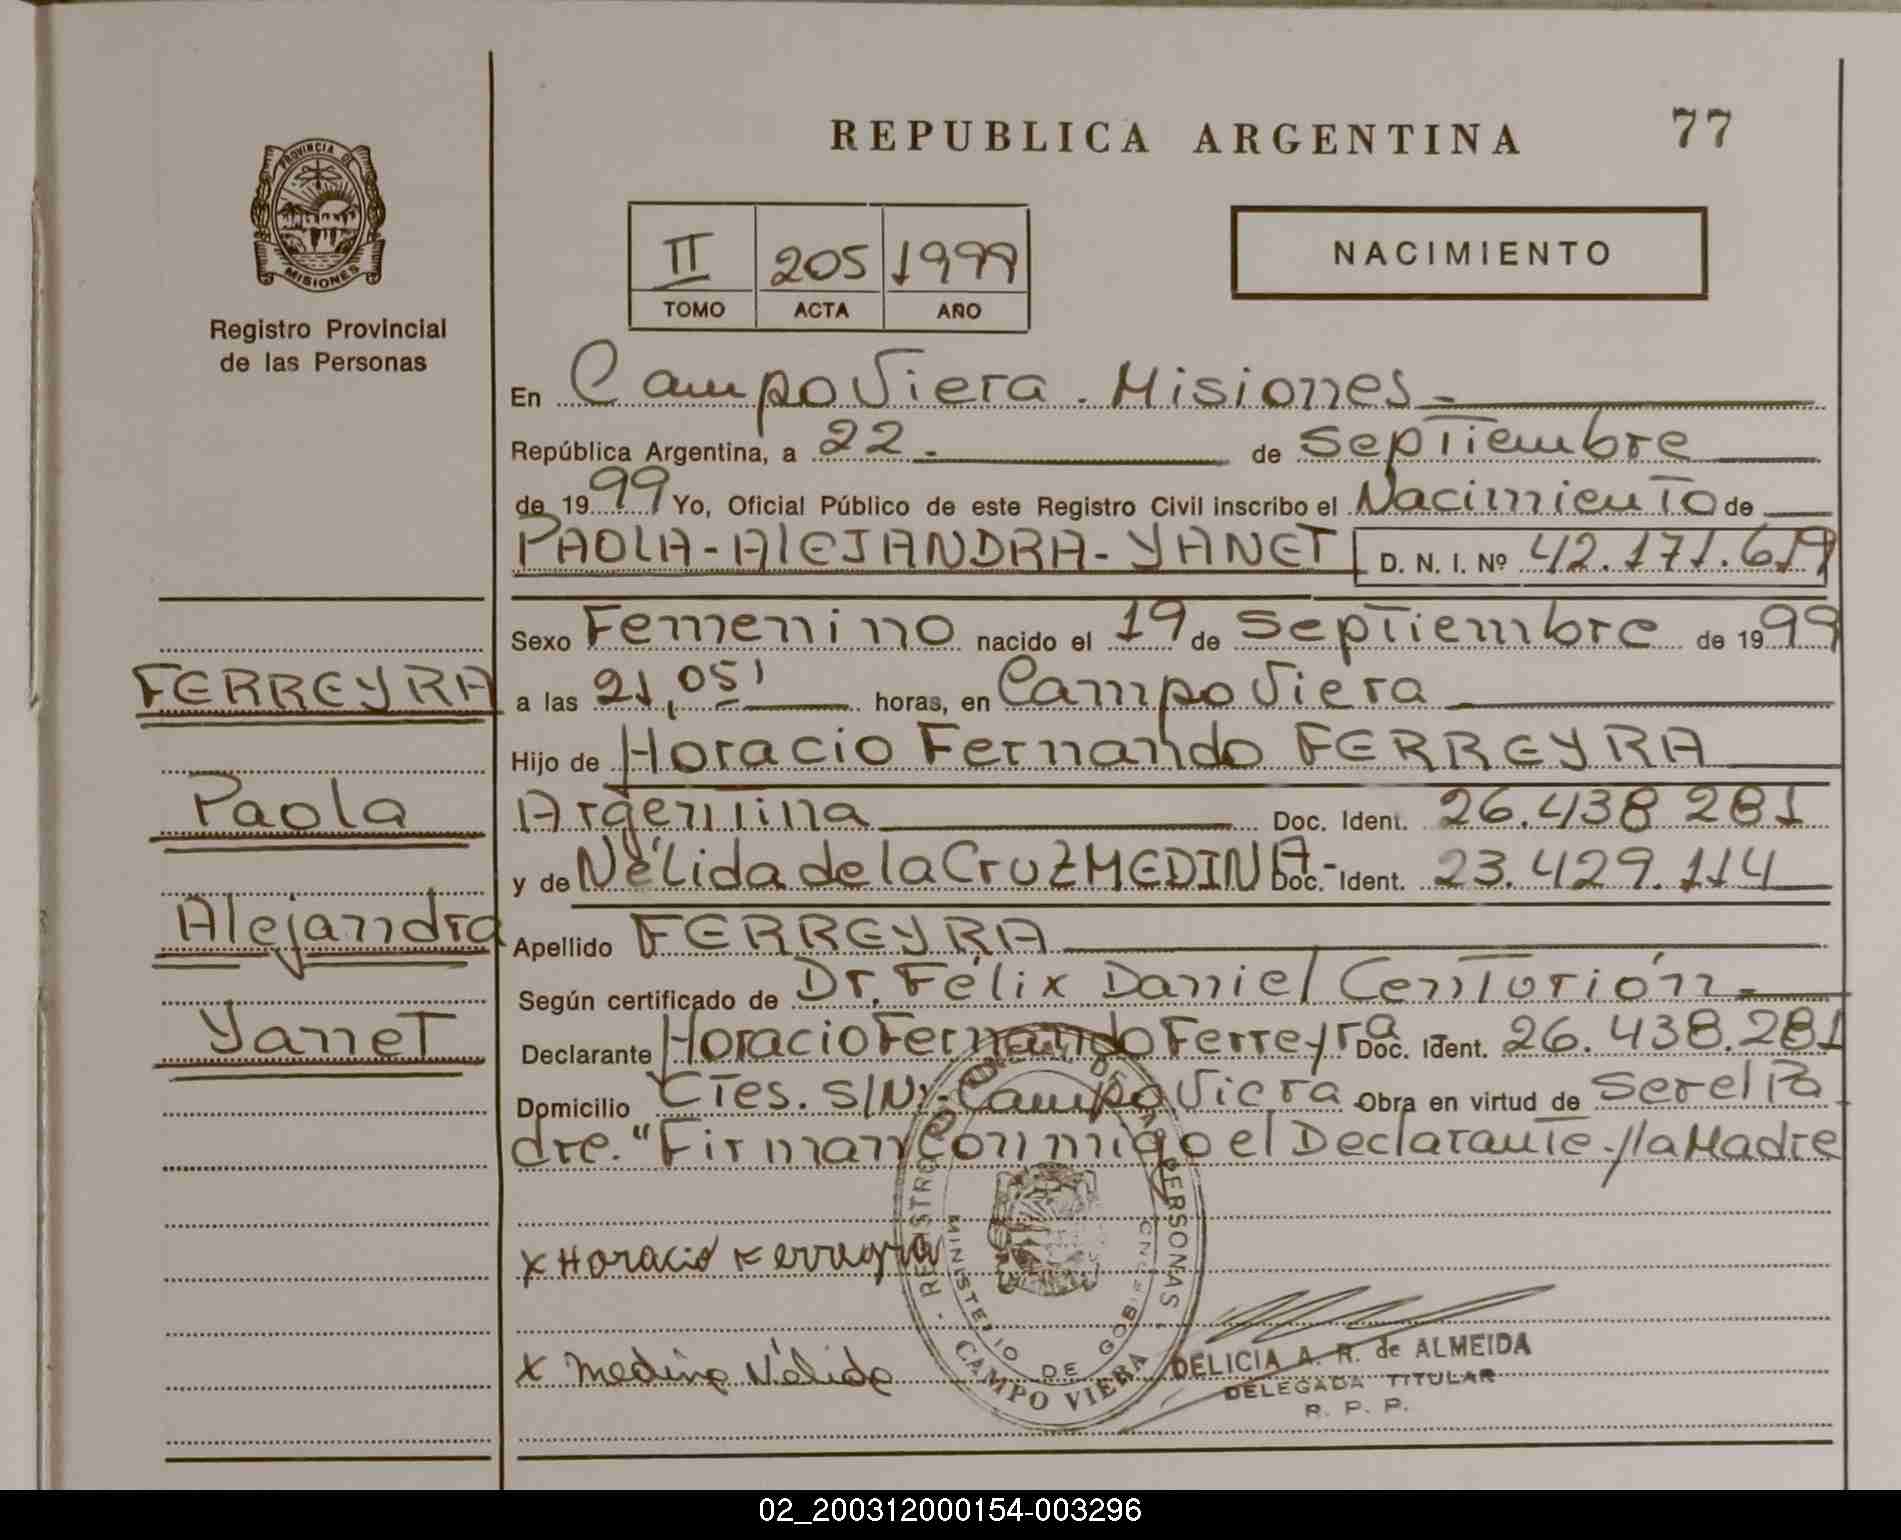 REPUBLICA ARGENTINA
77
PROVINCIA DE
MISIONES
Registro Provincial
de las Personas
II 205 1999
TOMO ACTA AÑO
NACIMIENTO
En Campo Viera. Misiones.-
República Argentina, a 22.- de Septiembre
de 1999 Yo, Oficial Público de este Registro Civil inscribo el Nacimiento de
PAOLA-AlEJANDRA-YANET D. N. I. Nº 42.171.619
Sexo Femenino nacido el 19 de Septiembre de 1999
FERREYRA
a las 21,05' horas, en Campo Viera
Hijo de Horacio Fernando FERREYRA
Paola
Argentina Doc. Ident. 26.438 281
y de Nélida de la Cruz MEDINA.- Doc. Ident. 23.429.114
Alejandra
Apellido FERREYRA
Según certificado de Dr. Félix Daniel Centurión.-
Yanet
Declarante Horacio Fernando Ferreyra Doc. Ident. 26.438.281
Domicilio Ctes. S/Nº.- Campo Viera Obra en virtud de Ser el Pa
dre." Firman Conmigo el Declarante y la Madre
X Horacio Ferreyra
X Medina Nélida
PERSONAS
MINISTERIO DE GOB
CAMPO VIERA
DELICIA A. R. de ALMEIDA
DELEGADA TITULAR
R. P. P.
02_200312000154-003296